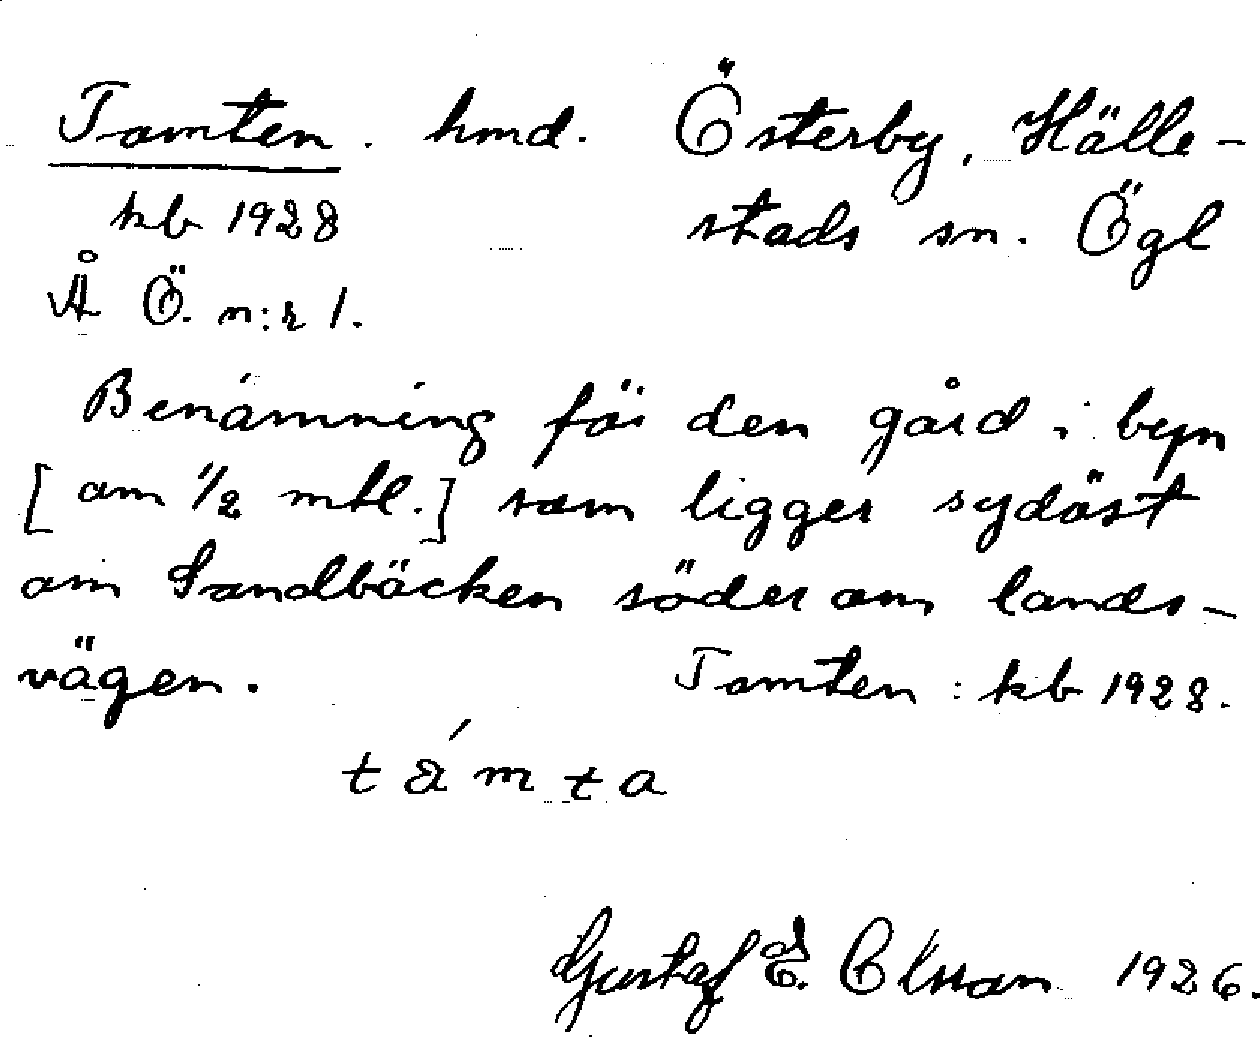 Tomten. hmd. Österby, Hälle-
kb 1928 stads sn. Ögl
Å Ö. n:r 1.
Benämning för den gård i byn
[om 1/2 mtl.] som ligger sydöst
om Sandbäcken söder om lands-
vägen. Tomten: kb 1928.
tåmta
Gustaf E. Olsson 1926.